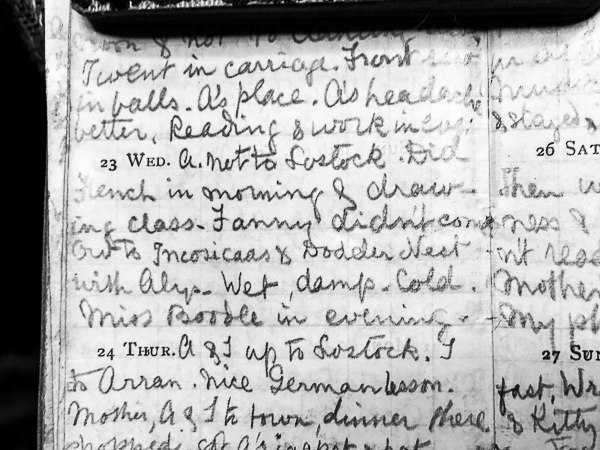 I went in carriage. Front seat
in falls. A's place. A's headache
better. Reading & work in evg.
23 WED. A. not to Sostock. Did
French in morning & draw-
ing class. Fanny didn't come
Out to & Dodder Nest
with Alys. Wet, damp. Cold.
Miss Boodle in evening.
24 THUR. A & I up to Sostock. I
to Arran. Nice German lesson.
Mother, A. & I to town, dinner there
shopped, got A's
& stayed
26 SAT
Then w
ness &
n't read
Mother
My ph
27 SUN
fast, Wr
& Kitty